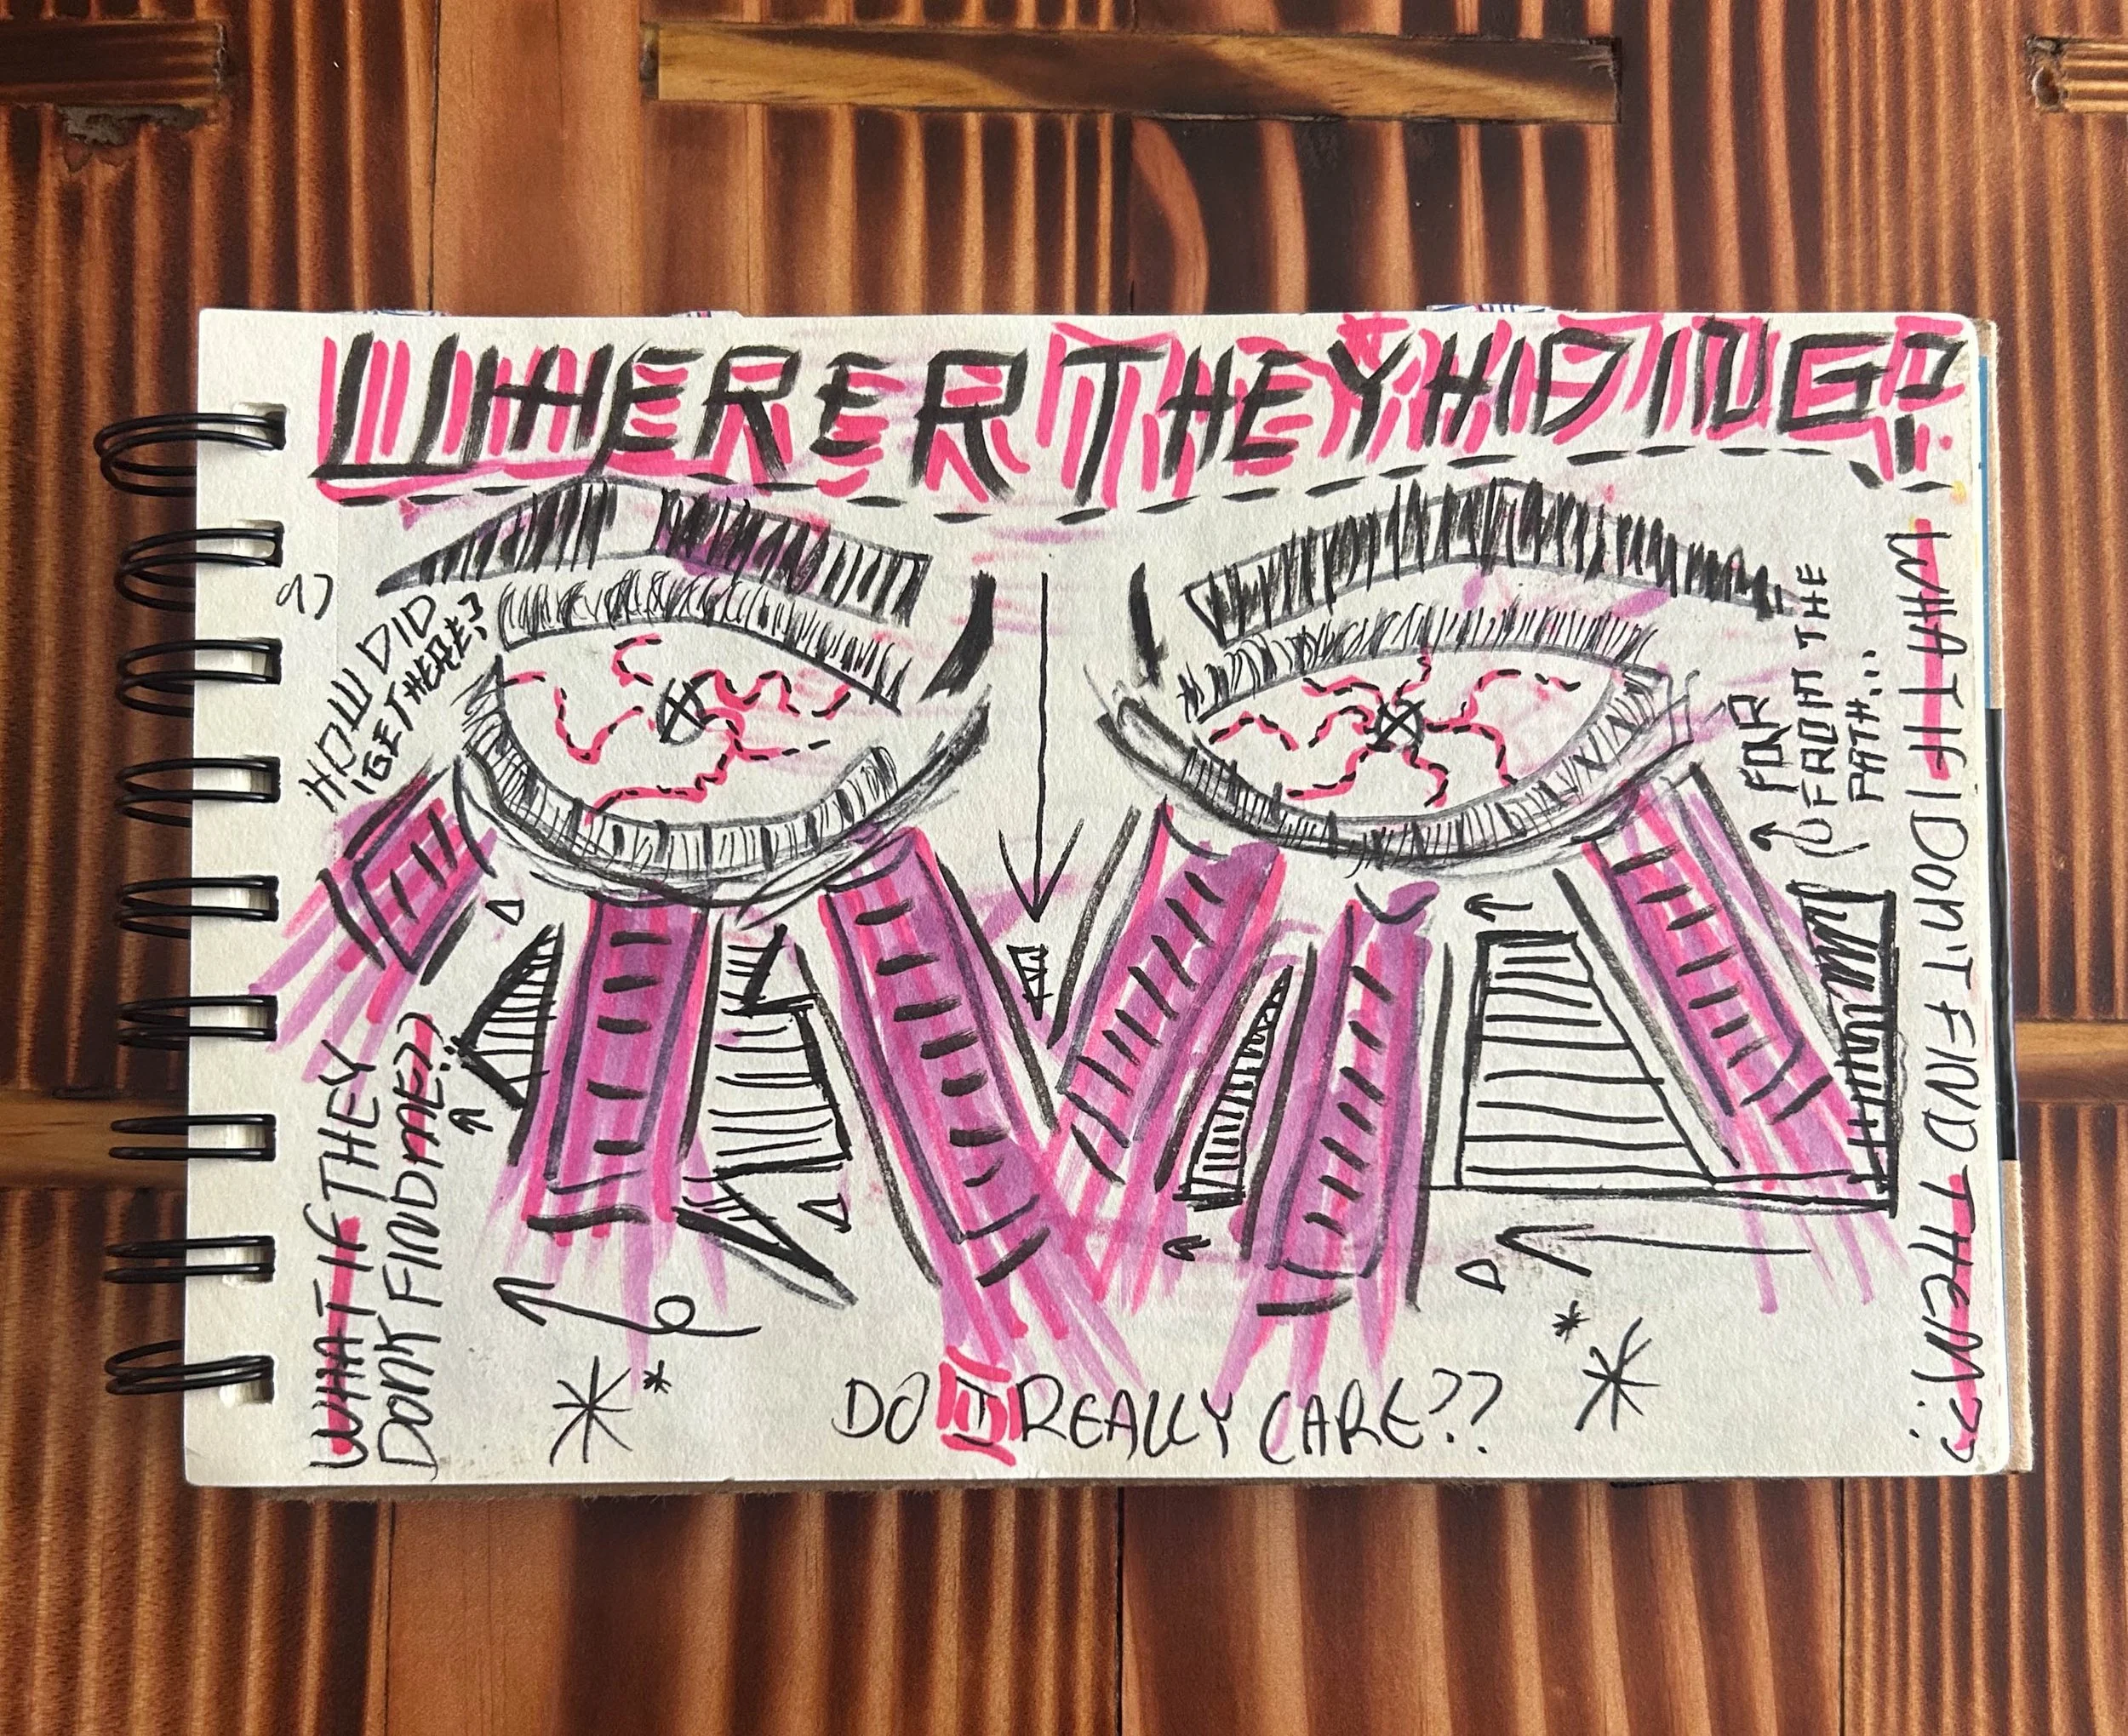 WHERE R THEY HIDING?
HOW DID
I GET HERE?
FAR
FROM THE
PATH...
WHAT IF I DON'T FIND THEM??
WHAT IF THEY
DONT FIND ME??
DO I REALLY CARE??